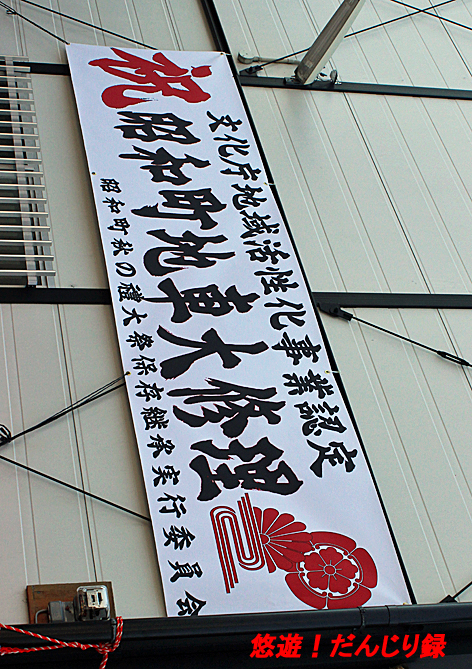 文化庁地域活性化事業認定
祝 昭和町地車大修理
昭和町秋の禮大祭保存継承実行委員会
悠遊！だんじり録